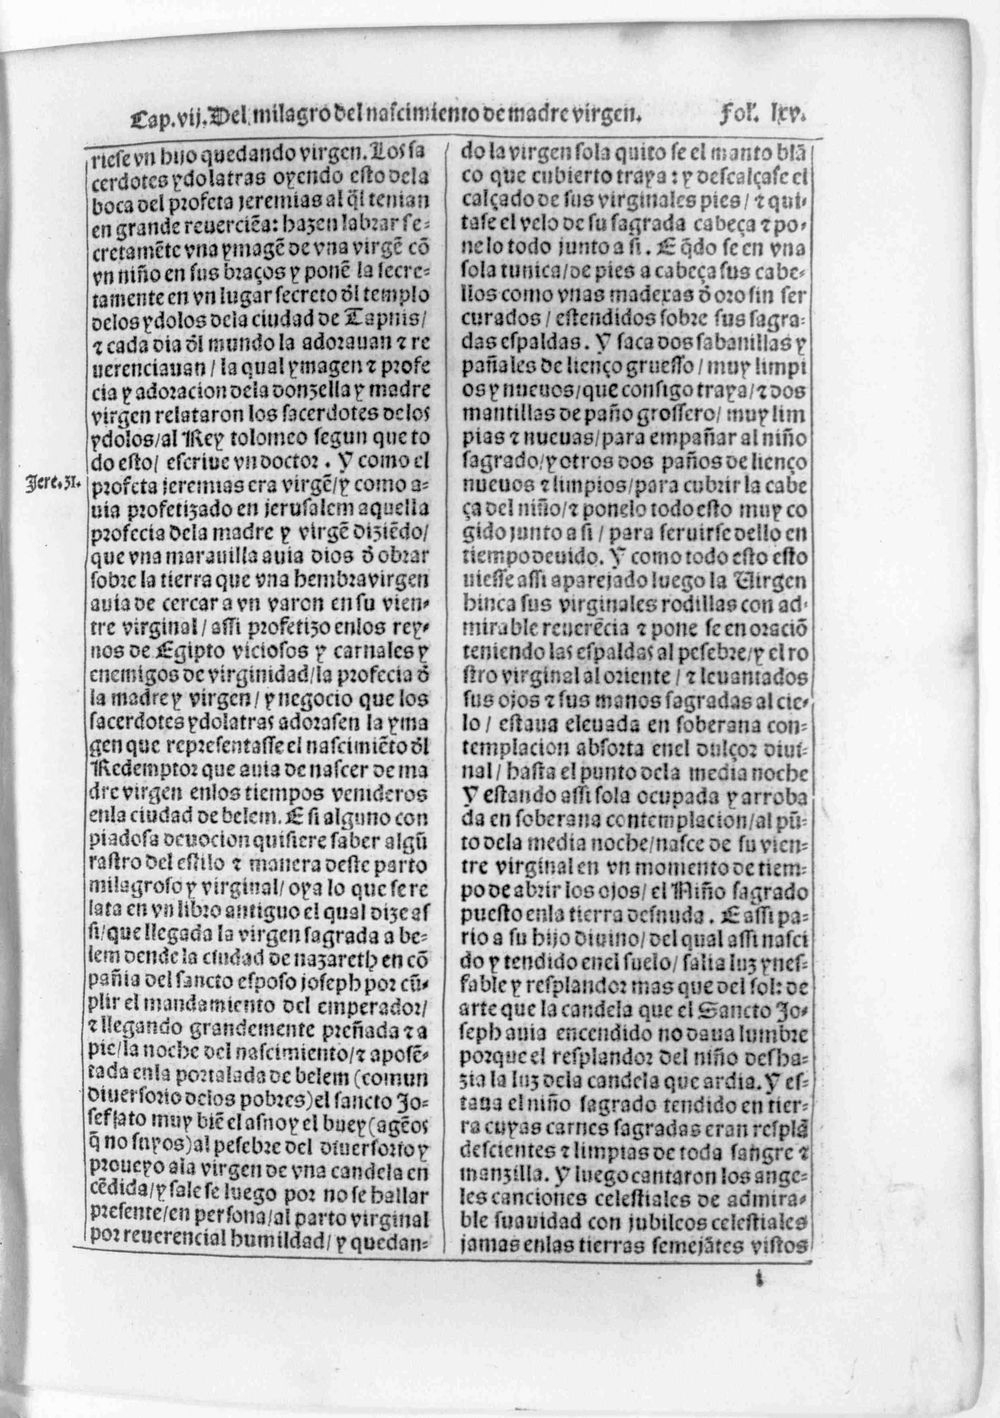 Cap.vij.Del milagro del nascimiento de madre virgen. Fol. lxv.
riese vn hijo quedando virgen. Los sa
cerdotes ydolatras oyendo esto dela
boca del profeta jeremias al q̃l tenian
en grande reuerẽcia: hazen labrar se-
cretamẽte vna ymagẽ de vna virgẽ cõ
vn niño en sus braços y ponẽ la secre-
tamente en vn lugar secreto ðl templo
delos ydolos dela ciudad de Tapnis/
⁊ cada dia ðl mundo la adorauan ⁊ re
uerenciauan/ la qual ymagen ⁊ profe
cia y adoracion dela donzella y madre
virgen relataron los sacerdotes delos
ydolos/al Rey tolomeo segun que to
do esto/ escriue vn doctor. Y como el
Jere.31.
profeta jeremias era virgẽ/y como a-
uia profetizado en jerusalem aquella
profecia dela madre y virgẽ diziẽdo/
que vna marauilla auia dios ð obrar
sobre la tierra que vna hembra virgen
auia de cercar a vn varon en su vien-
tre virginal/ assi profetizo enlos rey-
nos de Egipto viciosos y carnales y
enemigos de virginidad/la profecia ð
la madre y virgen/ y negocio que los
sacerdotes ydolatras adorasen la yma
gen que representasse el nascimiẽto ðl
Redemptor que auia de nascer de ma
dre virgen enlos tiempos venideros
enla ciudad de belem. E si alguno con
piadosa deuocion quisiere saber algũ
rastro del estilo ⁊ manera deste parto
milagroso y virginal/ oya lo que se re
lata en vn libro antiguo el qual dize as
si/que llegada la virgen sagrada a be-
lem dende la ciudad de nazareth en cõ
pañia del sancto esposo joseph por cũ-
plir el mandamiento del emperador/
⁊ llegando grandemente preñada ⁊ a
pie/la noche del nascimiento/⁊ aposẽ-
tada enla portalada de belem (comun
diuersorio delos pobres) el sancto Jo-
sef/ato muy biẽ el asno y el buey(agẽos
q̃ no suyos)al pesebre del diuersorio y
proueyo ala virgen de vna candela en
cẽdida/y sale se luego por no se hallar
presente/en persona/al parto virginal
por reuerencial humildad/ y quedan-
do la virgen sola quito se el manto blã
co que cubierto traya: y descalçase el
calçado de sus virginales pies/ ⁊ qui-
tase el velo de su sagrada cabeça ⁊ po-
nelo todo junto a si. E q̃do se en vna
sola tunica/de pies a cabeça sus cabe-
llos como vnas madexas ð oro sin ser
curados/ estendidos sobre sus sagra-
das espaldas. Y saca dos sabanillas y
pañales de lienço gruesso/ muy limpi
os y nueuos/que consigo traya/⁊ dos
mantillas de paño grossero/ muy lim
pias ⁊ nueuas/para empañar al niño
sagrado/y otros dos paños de lienço
nueuos ⁊ limpios/para cubrir la cabe
ça del niño/⁊ ponelo todo esto muy co
gido junto a si/ para seruirse dello en
tiempo deuido. Y como todo esto esto
uiesse assi aparejado luego la Virgen
hinca sus virginales rodillas con ad-
mirable reuerẽcia ⁊ pone se en oraciõ
teniendo las espaldas al pesebre/y el ro
stro virginal al oriente/ ⁊ leuantados
sus ojos ⁊ sus manos sagradas al cie-
lo/ estaua eleuada en soberana con-
templacion absorta enel dulçor diui-
nal/ hasta el punto dela media noche
Y estando assi sola ocupada y arroba
da en soberana contemplacion/al pũ-
to dela media noche/nasce de su vien-
tre virginal en vn momento de tiem-
po de abrir los ojos/ el Niño sagrado
puesto enla tierra desnuda. E assi pa-
rio a su hijo diuino/ del qual assi nasci
do y tendido enel suelo/ salia luz ynef-
fable y resplandor mas que del sol: de
arte que la candela que el Sancto Jo-
seph auia encendido no daua lumbre
porque el resplandor del niño desha-
zia la luz dela candela que ardia. Y es-
taua el niño sagrado tendido en tier-
ra cuyas carnes sagradas eran resplã
descientes ⁊ limpias de toda sangre ⁊
manzilla. Y luego cantaron los ange-
les canciones celestiales de admira-
ble suauidad con jubileos celestiales
jamas enlas tierras semejãtes vistos
i